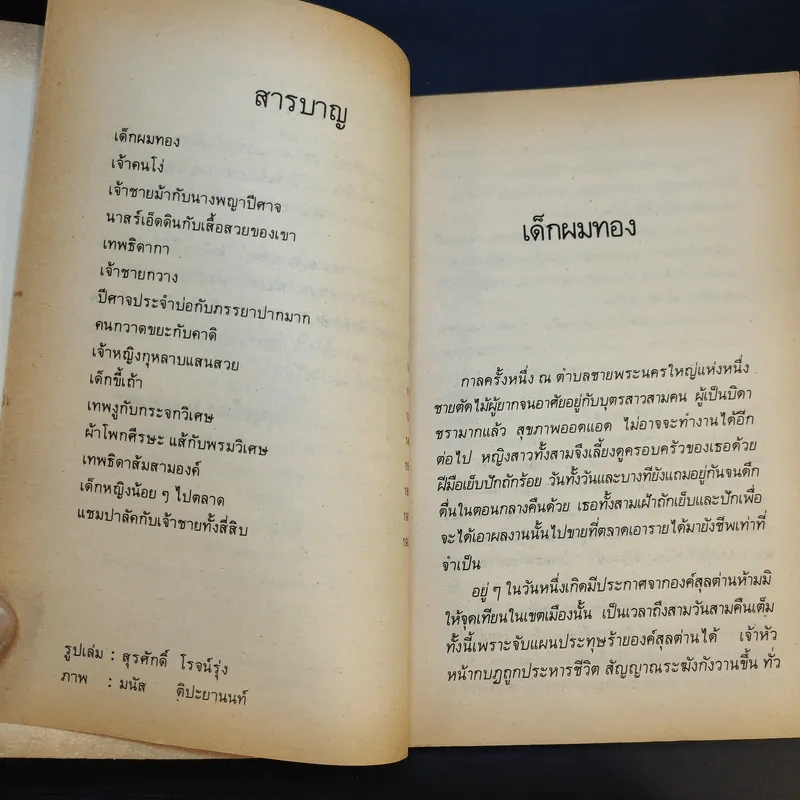 สารบาญ
เด็กผมทอง
เจ้าคนโง่
เจ้าชายม้ากับนางพญาปีศาจ
นาสร์เอ็ดดินกับเสื้อสวยของเขา
เทพธิดากา
เจ้าชายกวาง
ปีศาจประจำบ่อกับภรรยาปากมาก
คนกวาดขยะกับคาดิ
เจ้าหญิงกุหลาบแสนสวย
เด็กขี้เถ้า
เทพงูกับกระจกวิเศษ
ผ้าโพกศีรษะ แส้กับพรมวิเศษ
เทพธิดาส้มสามองค์
เด็กหญิงน้อย ๆ ไปตลาด
แชมปาลัคกับเจ้าชายทั้งสี่สิบ
รูปเล่ม : สุรศักดิ์ โรจน์รุ่ง
ภาพ : มนัส ติปะยานนท์
เด็กผมทอง
กาลครั้งหนึ่ง ณ ตำบลชายพระนครใหญ่แห่งหนึ่ง
ชายตัดไม้ผู้ยากจนอาศัยอยู่กับบุตรสาวสามคน ผู้เป็นบิดา
ชรามากแล้ว สุขภาพออดแอด ไม่อาจจะทำงานได้อีก
ต่อไป หญิงสาวทั้งสามจึงเลี้ยงดูครอบครัวของเธอด้วย
ฝีมือเย็บปักถักร้อย วันทั้งวันและบางทียังแถมอยู่กันจนดึก
ดื่นในตอนกลางคืนด้วย เธอทั้งสามเฝ้าถักเย็บและปักเพื่อ
จะได้เอาผลงานนั้นไปขายที่ตลาดเอารายได้มายังชีพเท่าที่
จำเป็น
อยู่ ๆ ในวันหนึ่งเกิดมีประกาศจากองค์สุลต่านห้ามมิ
ให้จุดเทียนในเขตเมืองนั้น เป็นเวลาถึงสามวันสามคืนเต็ม
ทั้งนี้เพราะจับแผนประทุษร้ายองค์สุลต่านได้ เจ้าหัว
หน้ากบฏถูกประหารชีวิต สัญญาณระฆังกังวานขึ้น ทั่ว